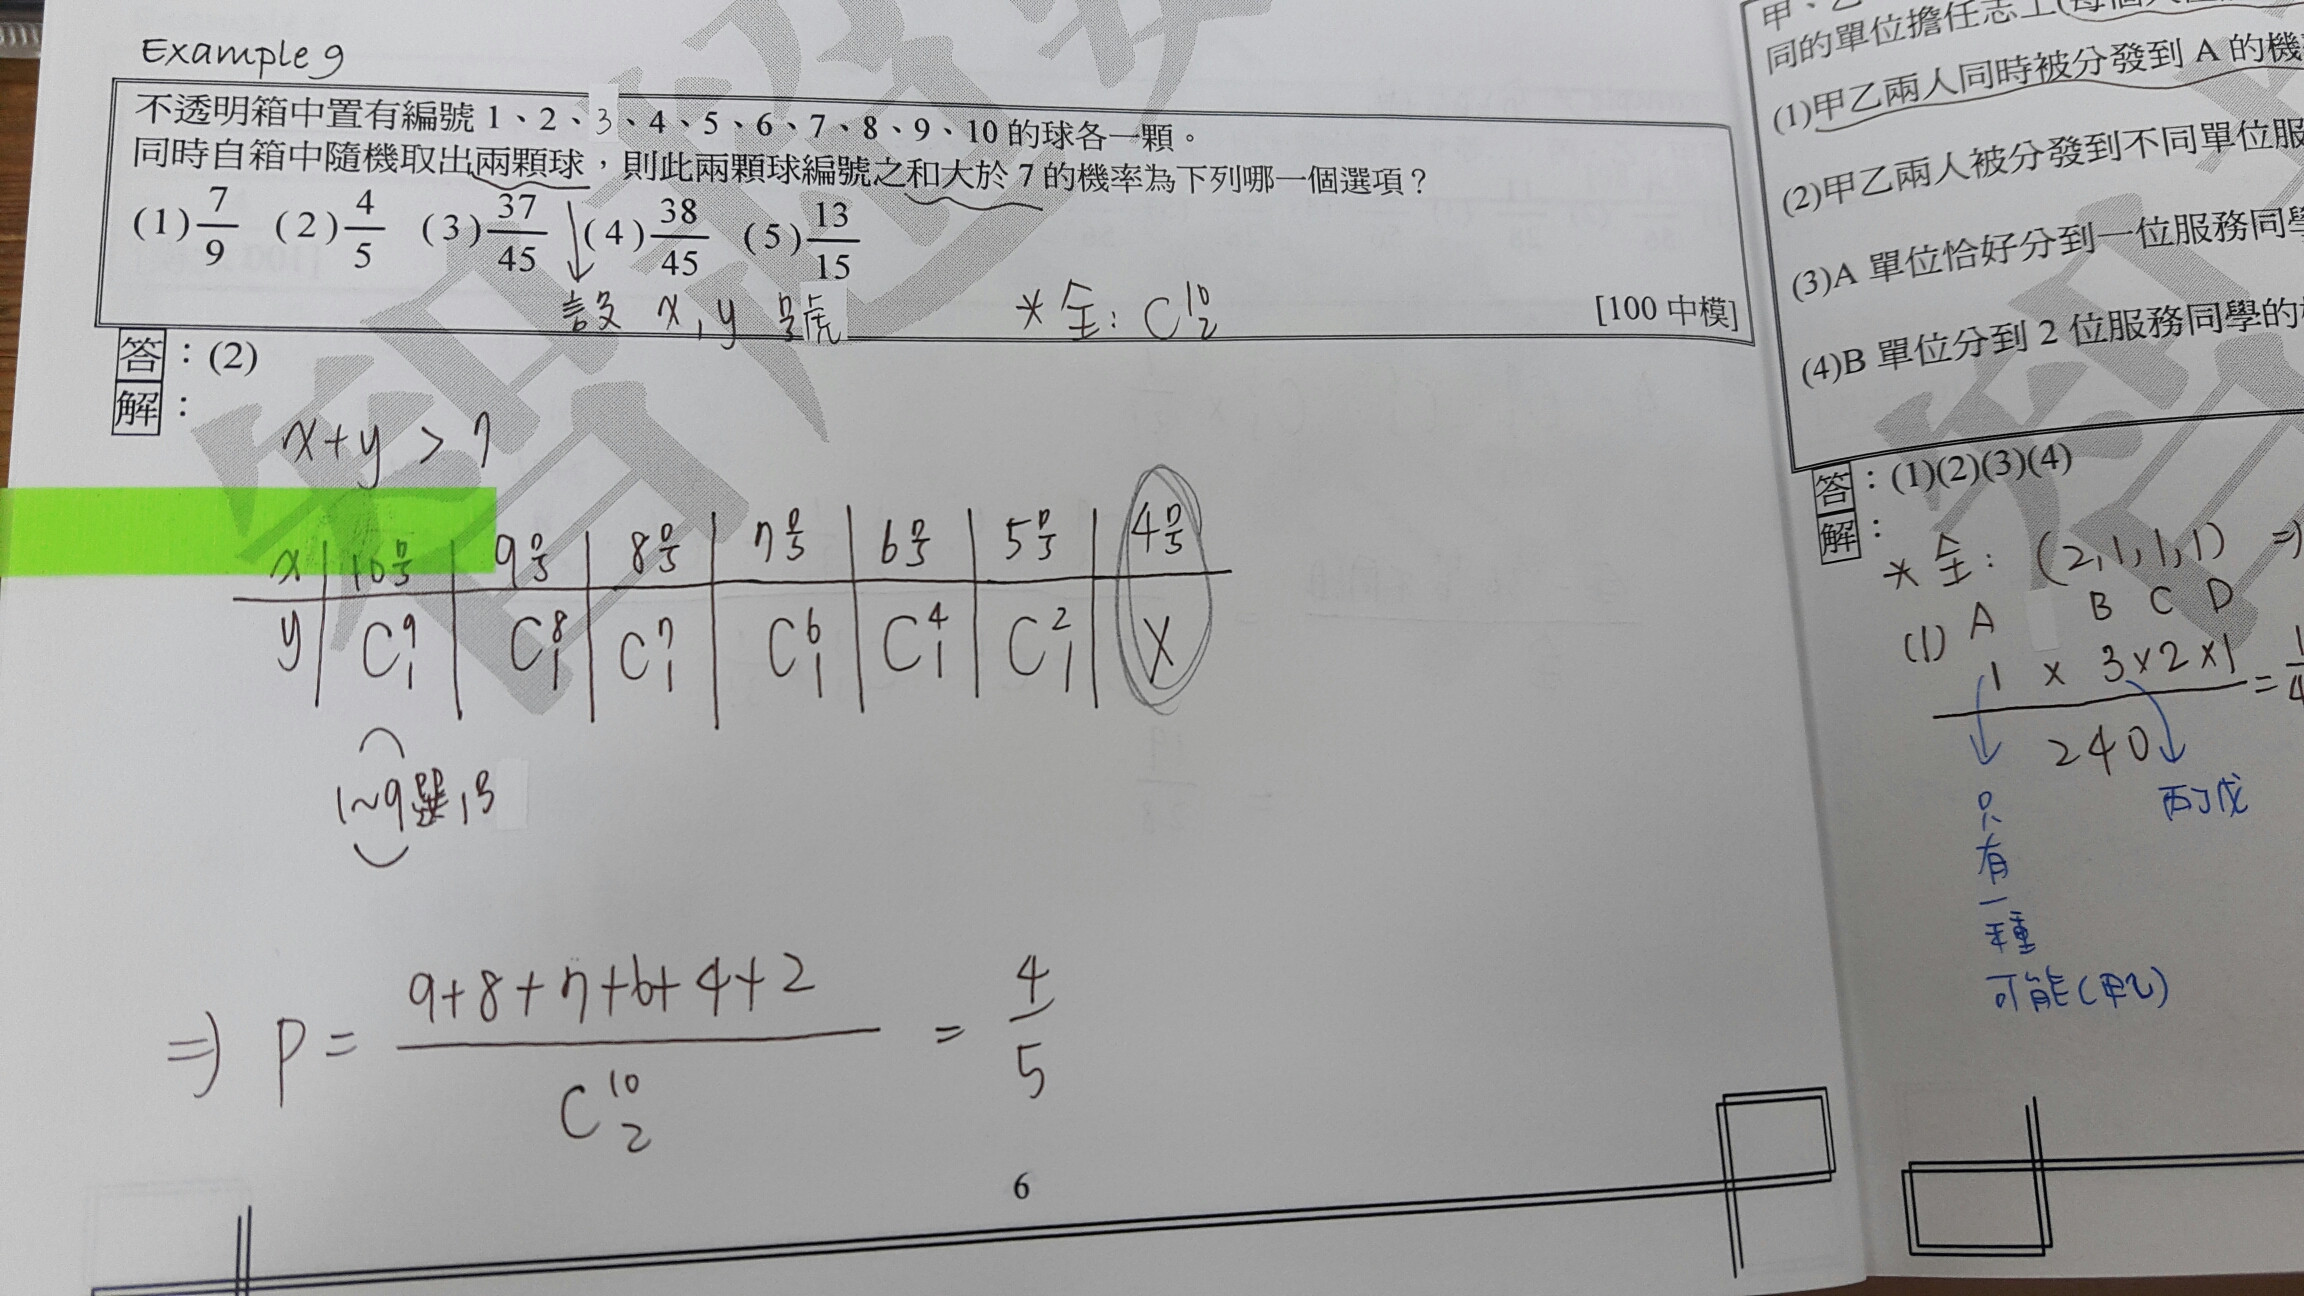 Example 9
不透明箱中置有編號 1、2、3、4、5、6、7、8、9、10 的球各一顆。
同時自箱中隨機取出兩顆球，則此兩顆球編號之和大於 7 的機率為下列哪一個選項？
(1) 7/9 (2) 4/5 (3) 37/45 (4) 38/45 (5) 13/15
設 x, y 號 * 全: C¹⁰₂
[100 中模]
答：(2)
解：
x+y > 7
x 10号 9号 8号 7号 6号 5号 4号
y C⁹₁ C⁸₁ C⁷₁ C⁶₁ C⁴₁ C² ₁ X
1~9選1号
⇒ P = 9+8+7+6+4+2 / C¹⁰₂ = 4/5
6
甲、乙
同的單位擔任志工(每個
(1)甲乙兩人同時被分發到 A 的機
(2)甲乙兩人被分發到不同單位服
(3)A 單位恰好分到一位服務同學
(4)B 單位分到 2 位服務同學的
答：(1)(2)(3)(4)
解：
* 全: (2,1,1,1) ⇒
(1) A B C D
1 × 3×2×1 / 240 = 1/4
只有一種
可能(甲乙)
丙丁戊